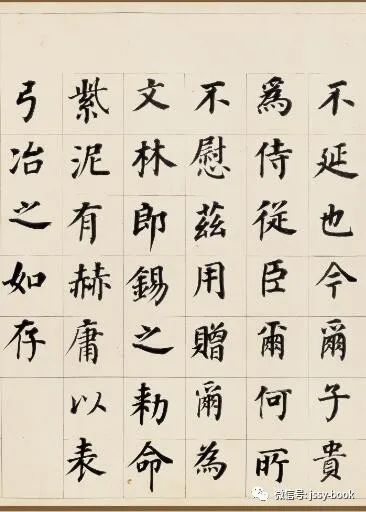 不延也今爾子貴
為侍從臣爾何所
不慰茲用贈爾為
文林郎錫之勅命
紫泥有赫庸以表
弓冶之如存
微信号: jssy-book